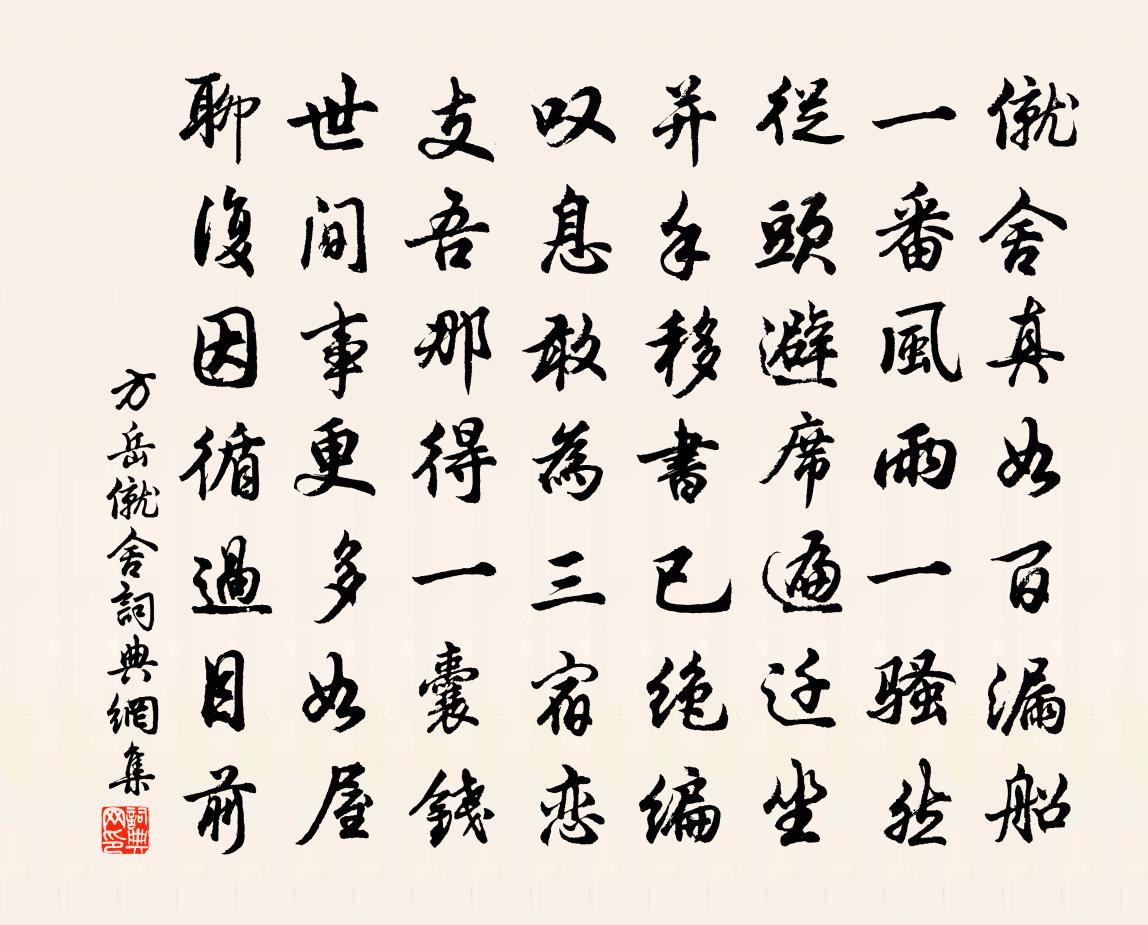 僦舍真如百漏船
一番風雨一騷然
從頭避席遍迁坐
并手移書已絶编
叹息敢為三宿恋
支吾那得一囊錢
世間事更多如屋
聊復因循過目前
方岳僦舍詞典網集
詞典网印